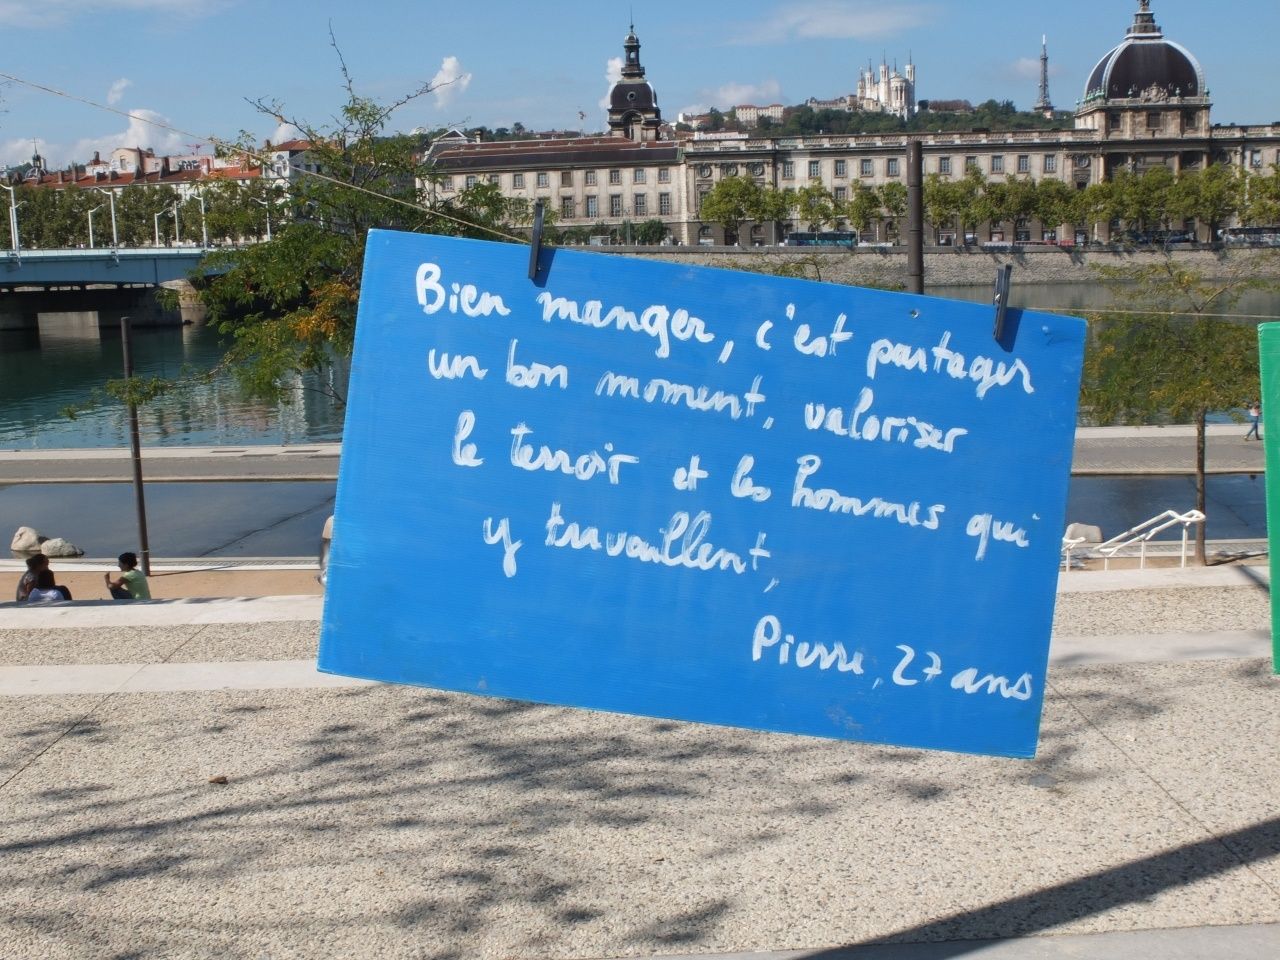 Bien manger, c'est partager
un bon moment, valoriser
le terroir et les hommes qui
y travaillent,
Pierre, 27 ans